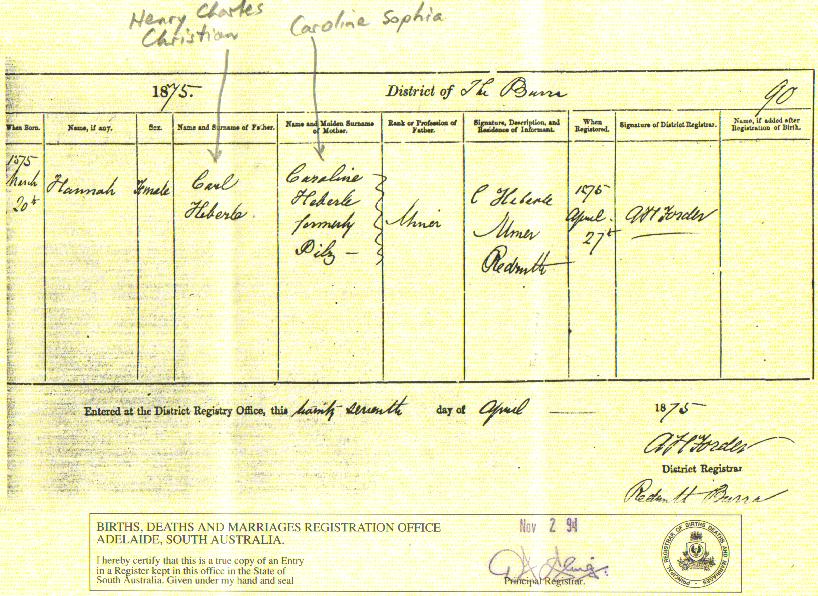 Henry Charles
Christian
Caroline Sophia
1875. District of The Burra 90
When Born. Name, if any. Sex. Name and Surname of Father. Name and Maiden Surname of Mother. Rank or Profession of Father. Signature, Description, and Residence of Informant. When Registered. Signature of District Registrar. Name, if added after Registration of Birth.
1875
March
20th
Hannah
Female
Carl
Heberle
Caroline
Heberle
formerly
Pilz –
Miner
C Heberle
Miner
Redruth
1875
April
27th
A H Forder
Entered at the District Registry Office, this twenty seventh day of April 1875
A H Forder
District Registrar
Redruth Burra
BIRTHS, DEATHS AND MARRIAGES REGISTRATION OFFICE
ADELAIDE, SOUTH AUSTRALIA.
I hereby certify that this is a true copy of an Entry
in a Register kept in this office in the State of
South Australia. Given under my hand and seal
Nov 2 94
Principal Registrar.
PRINCIPAL REGISTRAR OF BIRTHS DEATHS AND MARRIAGES